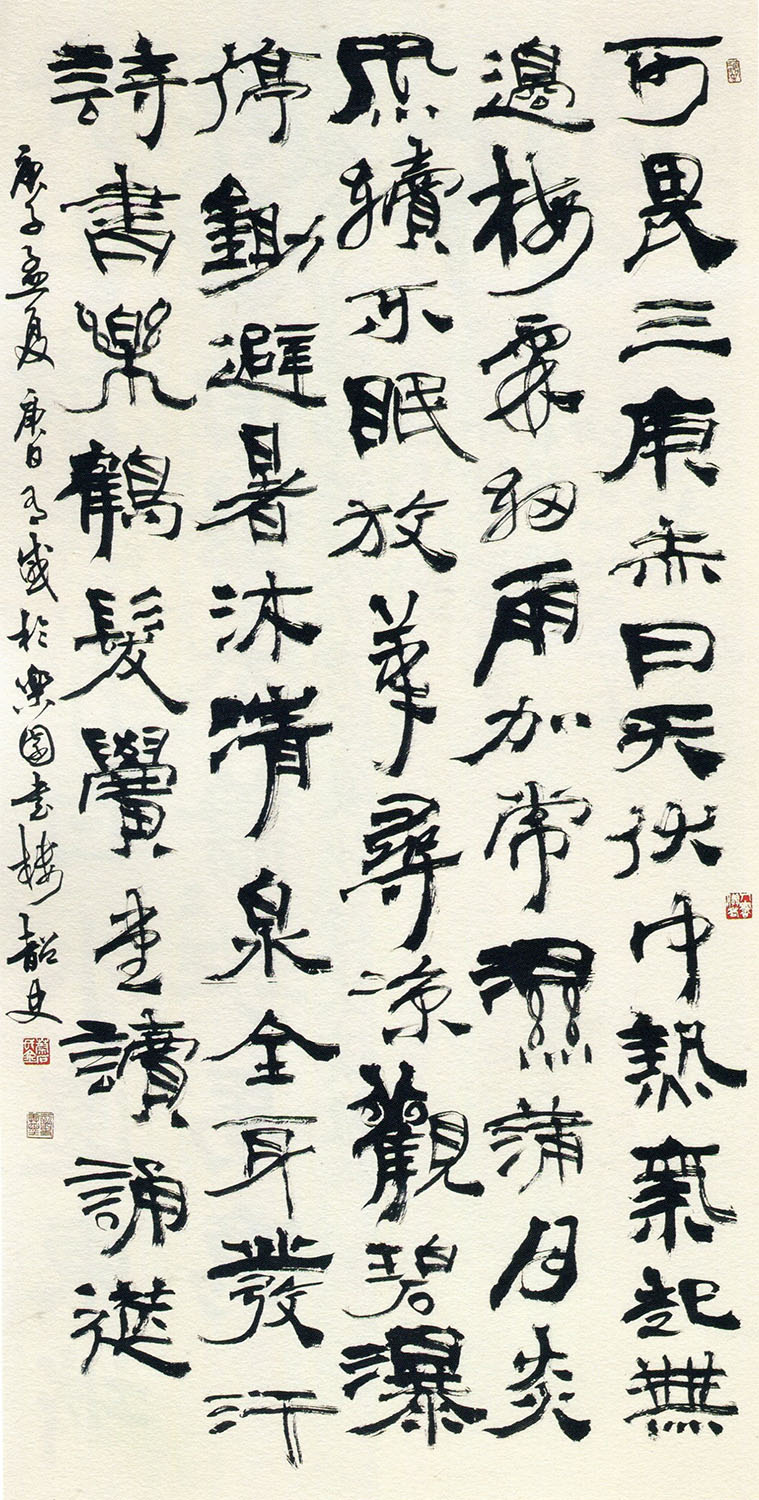 可畏三庚赤日天伏中熱氣起無
邊梅霖細雨加常濕蒲月炎
風續不眠放筆尋涼觀碧瀑
停鋤避暑沐清泉全身發汗
詩書樂鶴髮黌堂讀誦從
庚子孟夏庚日有感於樂園書樓韶史